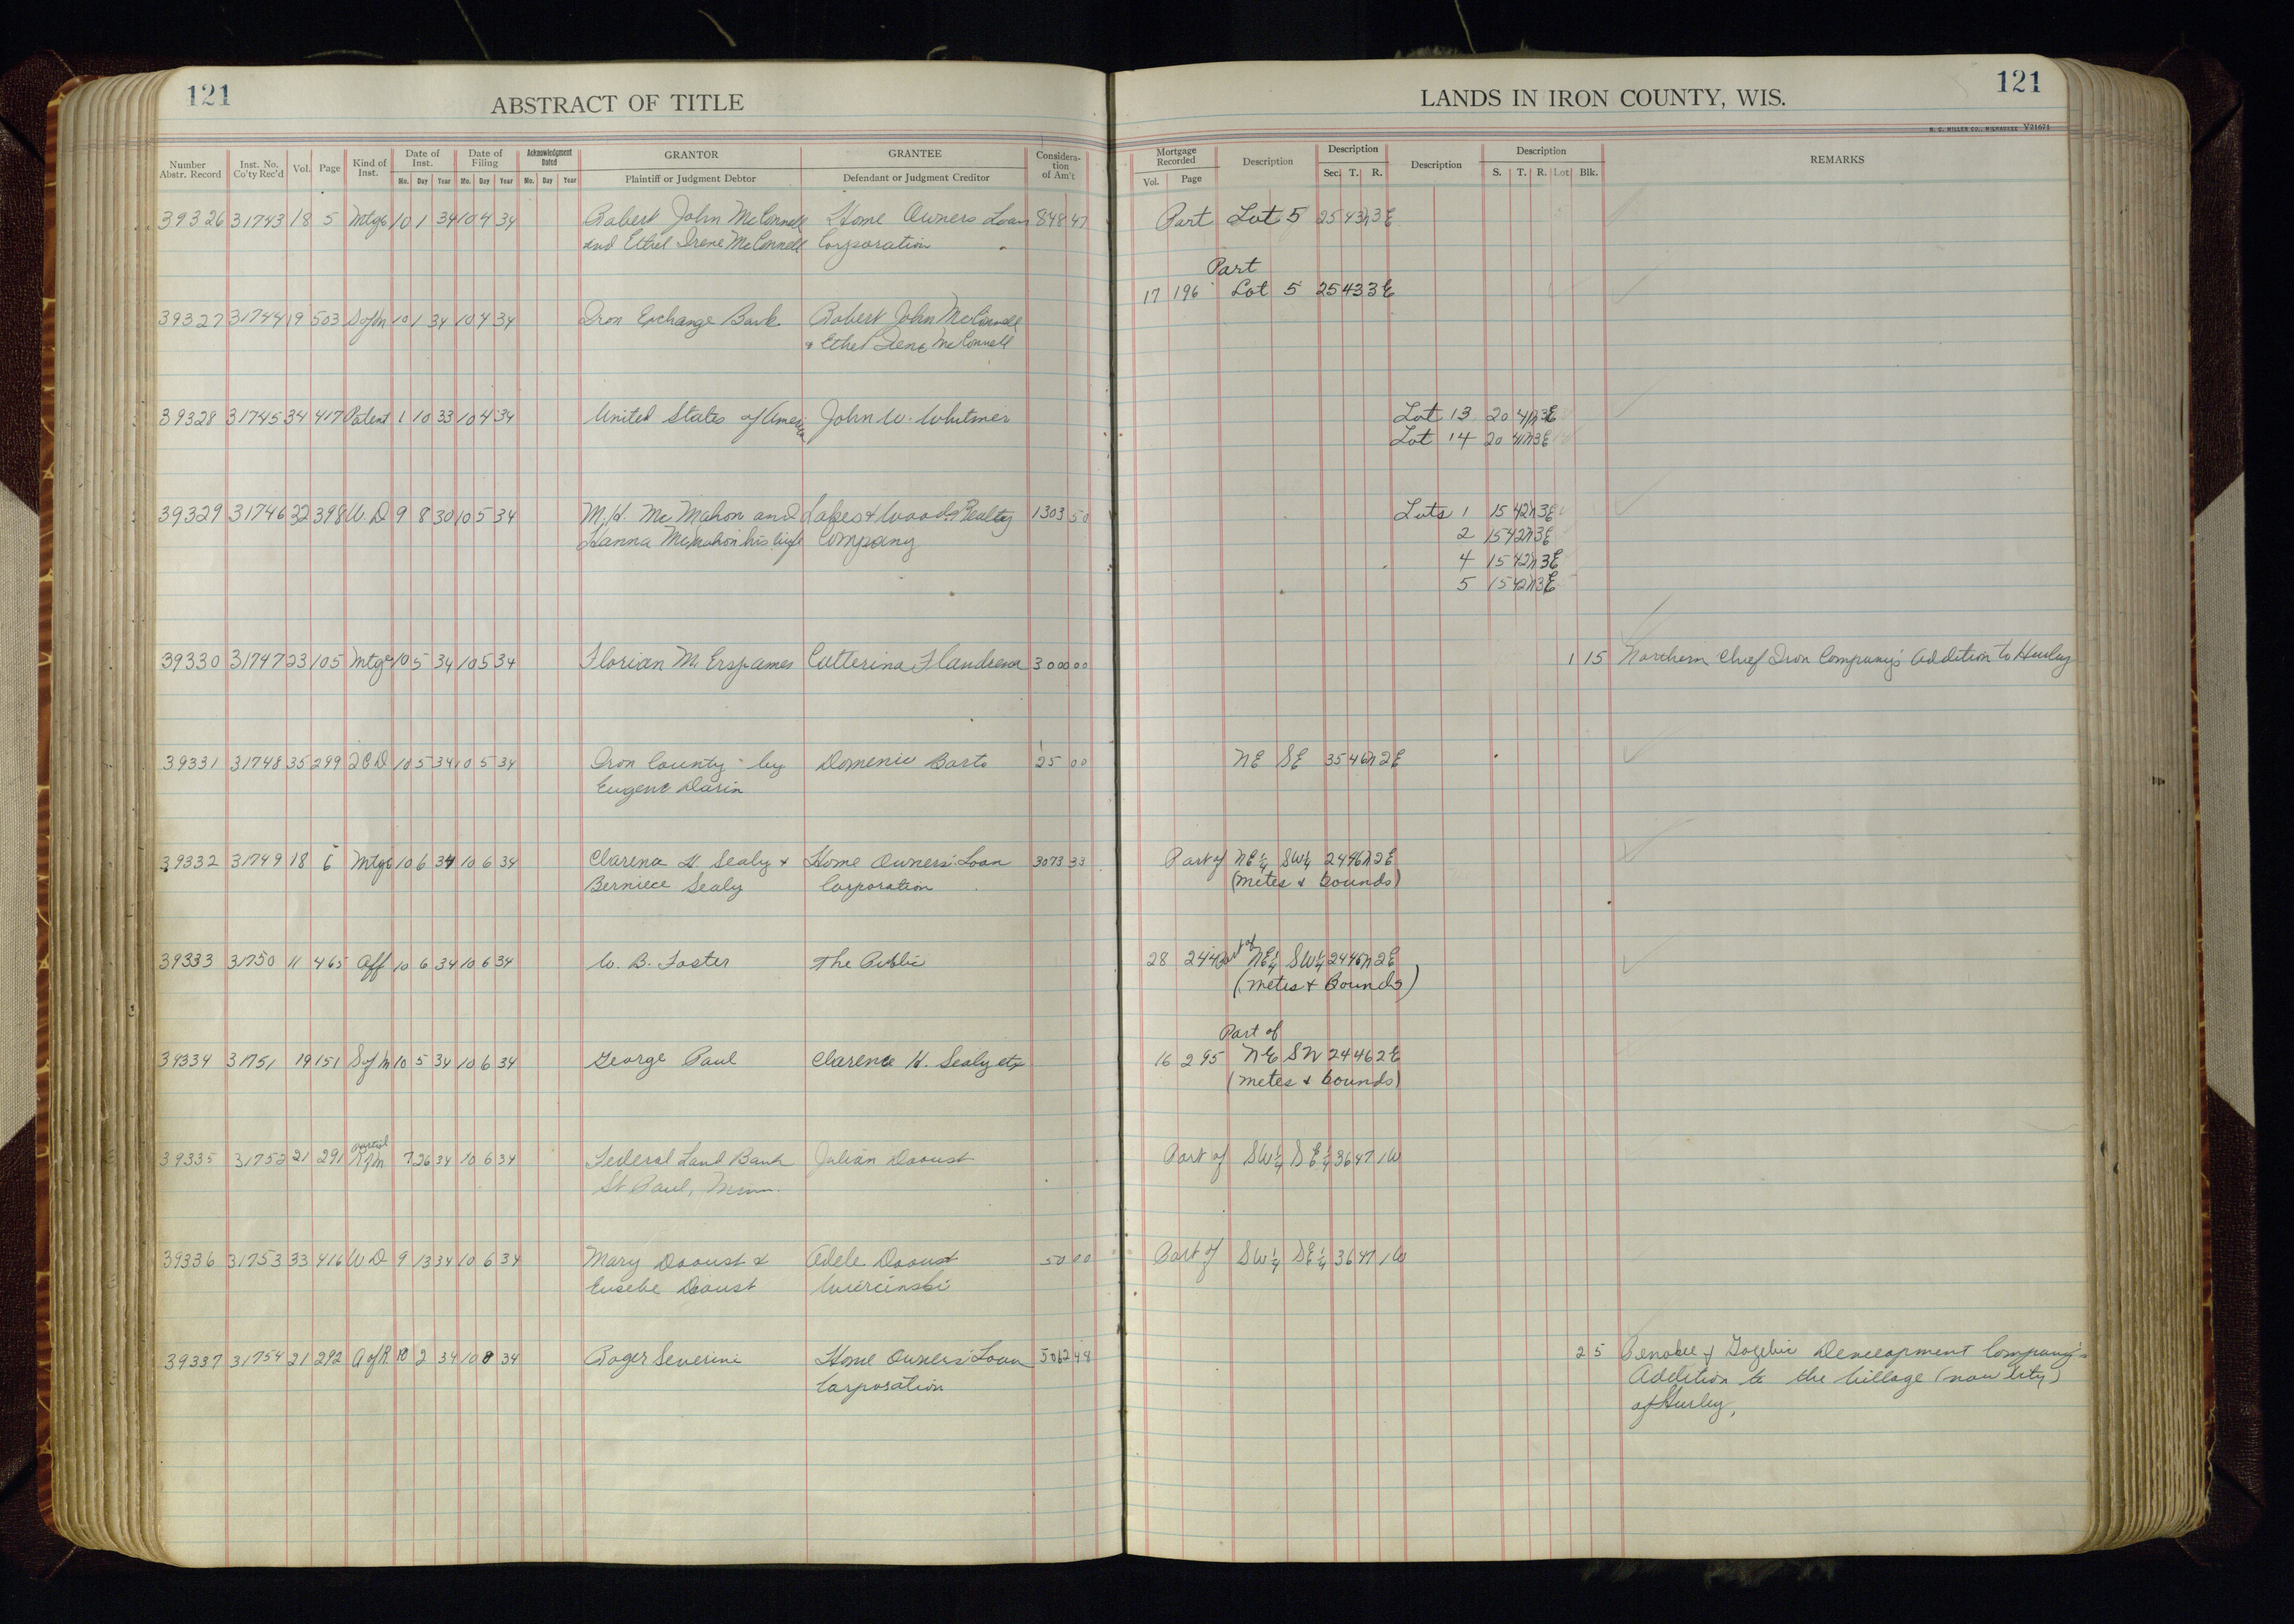 121
ABSTRACT OF TITLE
Number Abstr. Record Inst. No. Co'ty Rec'd Vol. Page Kind of Inst. Date of Inst. Mo. Day Year Date of Filing Mo. Day Year Acknowledgment Dated Mo. Day Year GRANTOR Plaintiff or Judgment Debtor GRANTEE Defendant or Judgment Creditor Consideration of Am't
39326 31743 18 5 Mtge 10 1 34 10 4 34 Robert John McConnell Home Owners Loan 848 47
and Ethel Irene McConnell Corporation
39327 31744 19 503 S of M 10 1 34 10 4 34 Iron Exchange Bank Robert John McConnell
& Ethel Irene McConnell
39328 31745 34 417 Patent 1 10 33 10 4 34 United States of America John W. Whitmer
39329 31746 32 398 W. D 9 8 30 10 5 34 M. H. McMahon and Lakes & Woods Realty 1303 50
Hanna McMahon his wife Company
39330 31747 23 105 Mtge 10 5 34 10 5 34 Florian M. Erspames Catterina Flandrena 3000 00
39331 31748 35 299 2 C D 10 5 34 10 5 34 Iron County by Domenic Barto 25 00
Eugene Darin
39332 31749 18 6 Mtge 10 6 34 10 6 34 Clarence H. Sealy & Home Owners' Loan 3073 33
Berniece Sealy Corporation
39333 31750 11 465 Aff 10 6 34 10 6 34 W. B. Foster The Public
39334 31751 19 151 S of M 10 5 34 10 6 34 George Paul Clarence H. Sealy etx
39335 31752 21 291 Partial R of M 7 26 34 10 6 34 Federal Land Bank Julian Daoust
St Paul, Minn.
39336 31753 33 416 W D 9 13 34 10 6 34 Mary Daoust & Adele Daoust 50 00
Eusebe Daoust Wiercinski
39337 31754 21 292 A of R 10 2 34 10 8 34 Roger Severini Home Owners' Loan 5062 48
Corporation
121
LANDS IN IRON COUNTY, WIS.
H. C. MILLER CO., MILWAUKEE V21671
Mortgage Recorded Vol. Page Description Description Sec. T. R. Description Description S. T. R. Lot Blk. REMARKS
Part Lot 5 25 43N 3E
Part
17 196 Lot 5 25 43 3E
Lot 13 20 41N 3E
Lot 14 20 41N 3E
Lots 1 15 42N 3E
2 15 42N 3E
4 15 42N 3E
5 15 42N 3E
1 15 Northern Chief Iron Company's Addition to Hurley
NE SE 35 46N 2E
Part of NE¼ SW¼ 24 46N 2E
(metes & bounds)
28 244 Part of NE¼ SW¼ 24 46N 2E
(metes & Bounds)
Part of
16 295 NE SW 24 46 2E
(metes & bounds)
Part of SW¼ SE¼ 36 47 1W
Part of SW¼ SE¼ 36 47 1W
2 5 Penokee & Gogebic Development Company's
Addition to the Village (now City)
of Hurley,